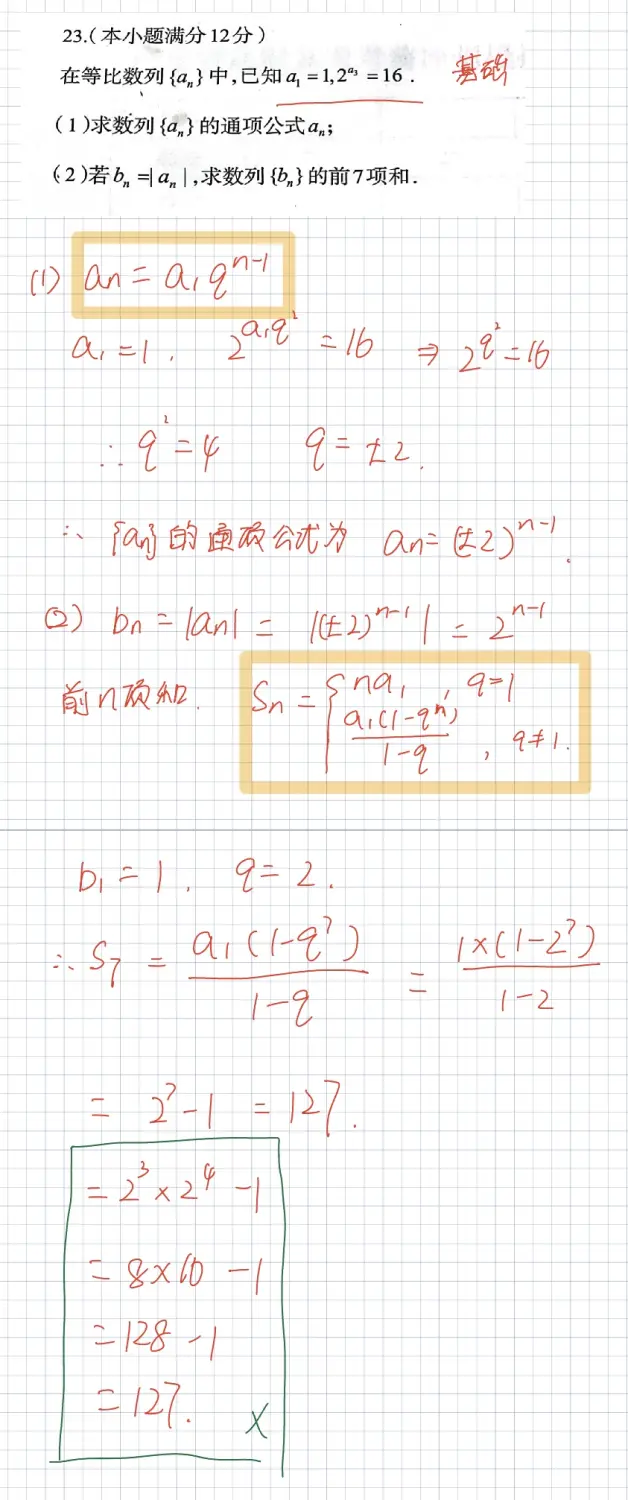 23.(本小题满分12分)
在等比数列{aₙ}中,已知a₁=1,2^(a₃)=16. 基础
(1)求数列{aₙ}的通项公式aₙ;
(2)若bₙ=|aₙ|,求数列{bₙ}的前7项和.
(1) aₙ=a₁qⁿ⁻¹
a₁=1. 2^(a₁q²)=16 ⇒ 2^(q²)=16
∴ q²=4 q=±2.
∴ {aₙ}的通项公式为 aₙ=(±2)ⁿ⁻¹.
(2) bₙ=|aₙ|=|(±2)ⁿ⁻¹|=2ⁿ⁻¹
前n项和. Sₙ={na₁, q=1
a₁(1-qⁿ)/(1-q), q≠1.
b₁=1. q=2.
∴S₇=a₁(1-q⁷)/(1-q)=1×(1-2⁷)/(1-2)
=2⁷-1=127.
=2³×2⁴-1
=8×16-1
=128-1
=127. ×